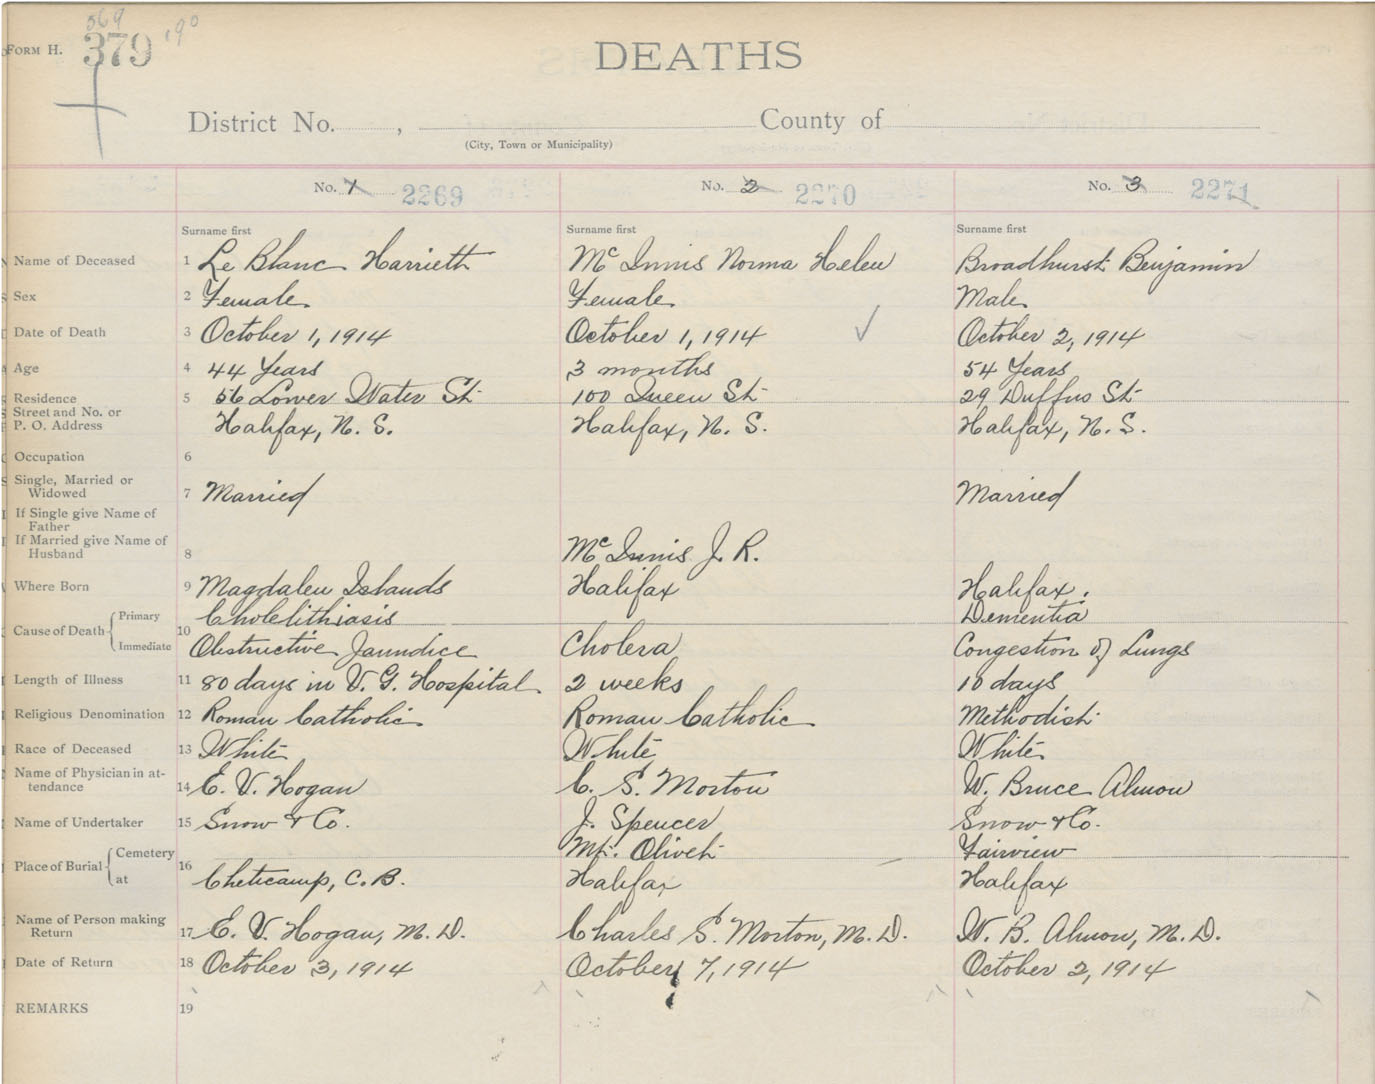 569
190
FORM H. 379
DEATHS
District No. , County of
(City, Town or Municipality)
No. 1 2269 No. 2 2270 No. 3 2271
Surname first Surname first Surname first
Name of Deceased 1 Le Blanc Harrieth McInnis Norma Helen Broadhurst Benjamin
Sex 2 Female Female Male
Date of Death 3 October 1, 1914 October 1, 1914 October 2, 1914
Age 4 44 Years 3 months 54 Years
Residence 5 56 Lower Water St 100 Queen St 29 Duffus St
Street and No. or
P. O. Address Halifax, N. S. Halifax, N. S. Halifax, N. S.
Occupation 6
Single, Married or
Widowed 7 Married Married
If Single give Name of
Father
If Married give Name of
Husband 8 McInnis J. R.
Where Born 9 Magdalen Islands Halifax Halifax.
Cause of Death Primary 10 Cholelithiasis Dementia
Immediate Obstructive Jaundice Cholera Congestion of Lungs
Length of Illness 11 80 days in V. G. Hospital 2 weeks 10 days
Religious Denomination 12 Roman Catholic Roman Catholic Methodist
Race of Deceased 13 White White White
Name of Physician in at-
tendance 14 E. V. Hogan C. S. Morton W. Bruce Almon
Name of Undertaker 15 Snow & Co. J. Spencer Snow & Co.
Place of Burial Cemetery 16 Mt. Olivet Fairview
at Cheticamp, C. B. Halifax Halifax
Name of Person making
Return 17 E. V. Hogan, M. D. Charles S. Morton, M. D. W. B. Almon, M. D.
Date of Return 18 October 3, 1914 October 7, 1914 October 2, 1914
REMARKS 19